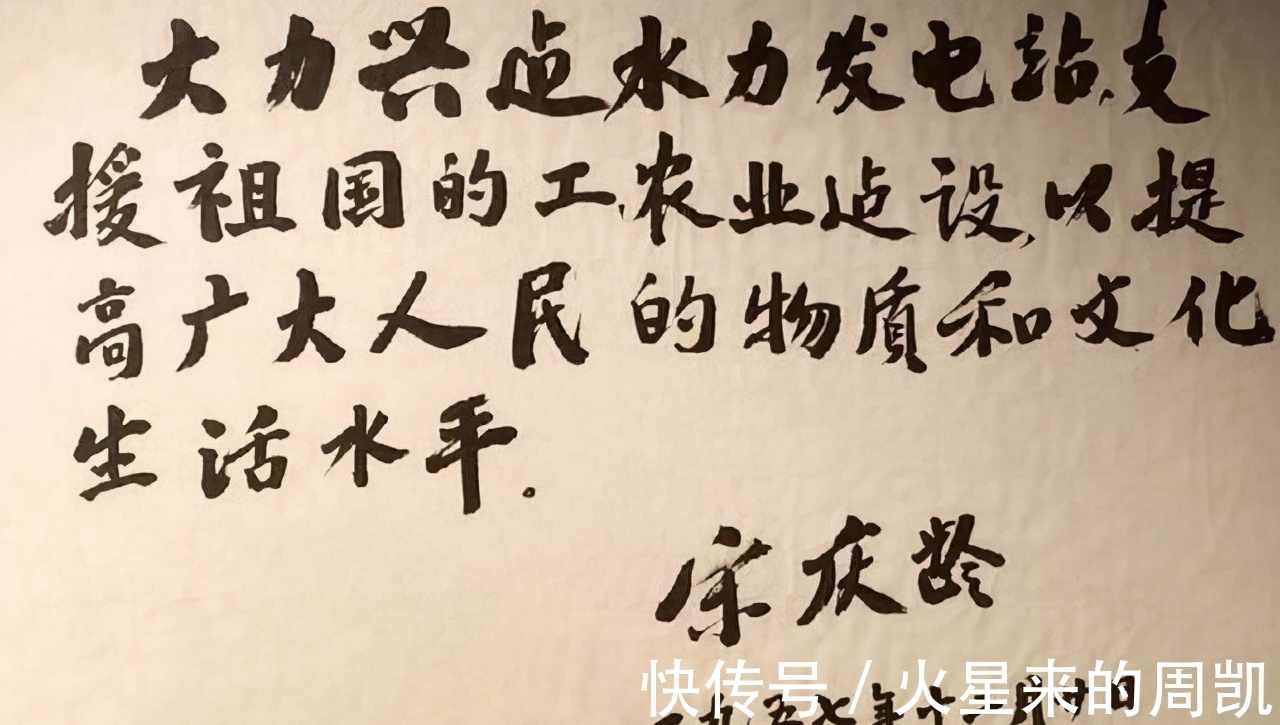 大力兴迠水力发电站,支
援祖国的工、农业迠设,以提
高广大人民的物质和文化
生活水平。
宋庆龄
快传号/火星来的周凯
一九五七年十二月 日